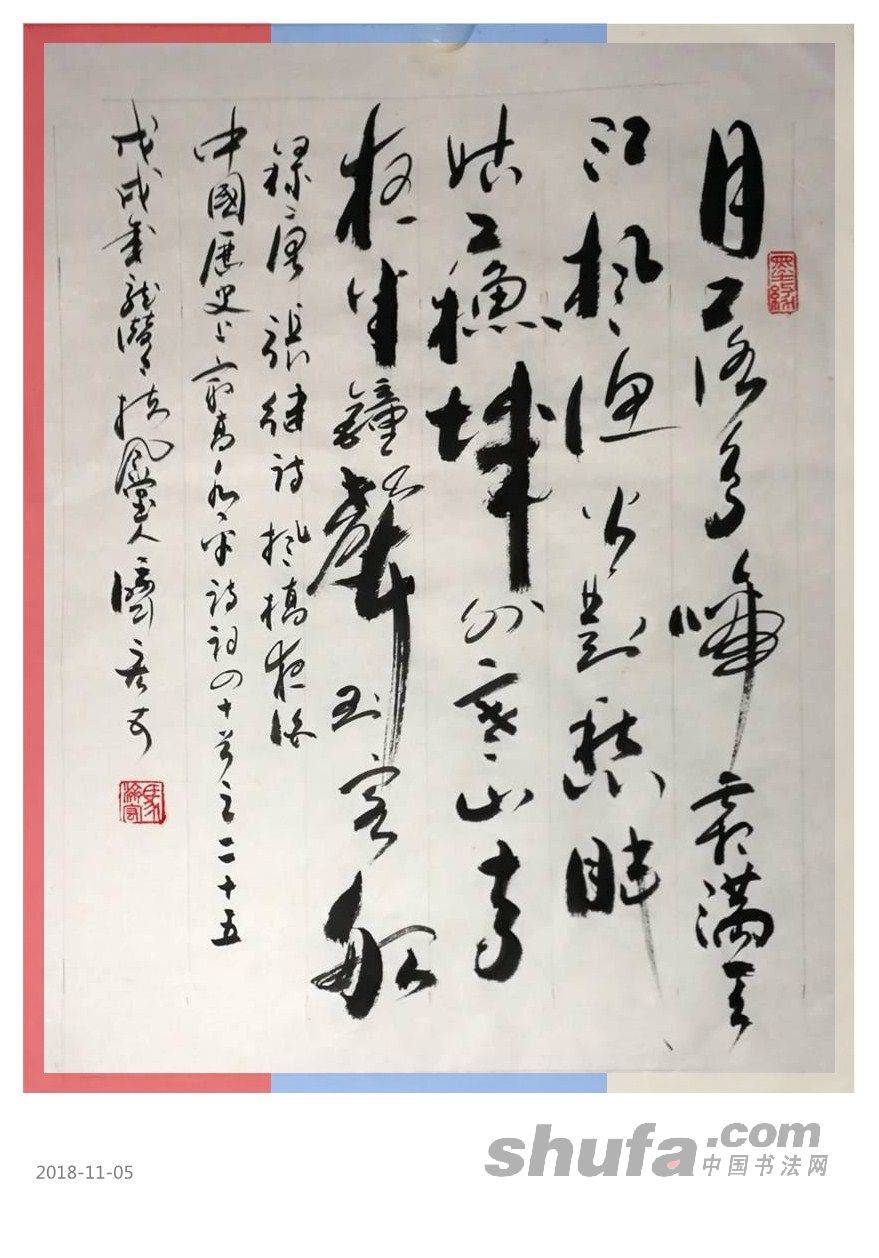 月落乌啼霜满天
江枫渔火对愁眠
姑苏城外寒山寺
夜半钟声到客船
录唐张继诗枫桥夜泊
中國历史上最高水平诗词四十首之二十五
戊戌年
2018-11-05
shufa.com
中国书法网